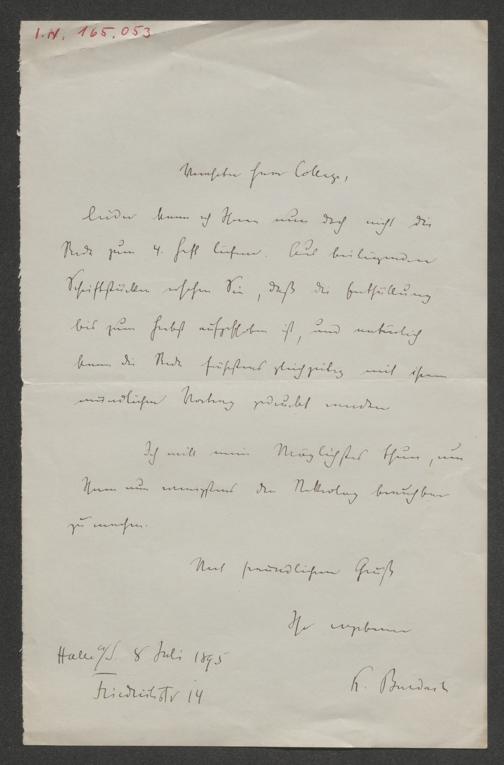 I.N. 165.053
Verehrter Herr College,
leider kann ich Ihnen nun doch nicht die
Rede zum 4. Heft liefern. Aus beiliegenden
Schriftstücken ersehen Sie, daß die Enthüllung
bis zum Herbst aufgeschoben ist, und natürlich
kann die Rede frühstens gleichzeitig mit ihrem
mündlichen Vortrag gedruckt werden
Ich will mein Möglichstes thun, um
Ihnen nun wenigstens den Nekrolog brauchbar
zu machen.
Mit freundlichem Gruß
Ihr ergebener
Halle a/S. 8 Juli 1895
Friedrichstr 14
K. Burdach